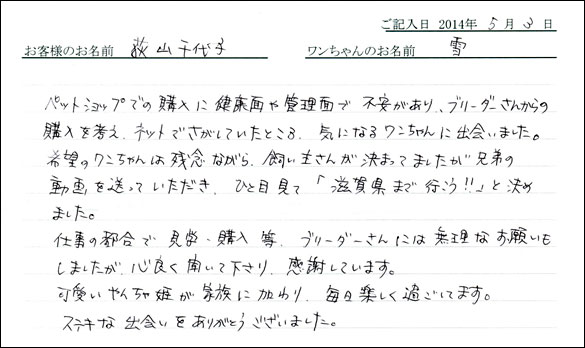 ご記入日 2014年 5月 3日
お客様のお名前 荻山千代子 ワンちゃんのお名前 雪
ペットショップでの購入に健康面や管理面で 不安があり、ブリーダーさんからの
購入を考え、ネットでさがしていたところ、気になるワンちゃんに出会いました。
希望のワンちゃんは残念ながら、飼い主さんが決まってましたが兄弟の
動画を送っていただき、ひと目見て「滋賀県まで行こう!!」と決め
ました。
仕事の都合で 見学・購入等、ブリーダーさんには無理なお願いも
しましたが、心良く聞いて下さり、感謝しています。
可愛いやんちゃ姫が家族に加わり、毎日楽しく過ごしてます。
ステキな出会いをありがとうございました。